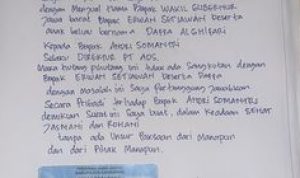 dengan Menjual Nama Bapak WAKIL GUBERNUR
Jawa barat Bapak ERWAN SETIAWAN Beserta
anak beliau bernama DAFFA ALGHIFARI
Kepada Bapak ANDRI SOMANTRI
Selaku DIREKTUR PT ADS.
Maka hutang piutang ini tidak ada Sangkutan dengan
Bapak ERWAN SETIAWAN Beserta Daffa
dengan masalah ini Saya Pertanggung Jawabkan
Secara Pribadi terhadap Bapak ANDRI SOMANTRI
demikian Surat ini Saya buat, dalam Keadaan SEHAT
JASMANI dan ROHANI
tanpa ada Unsur Paksaan dari Manapun
dan dari Pihak Manapun.